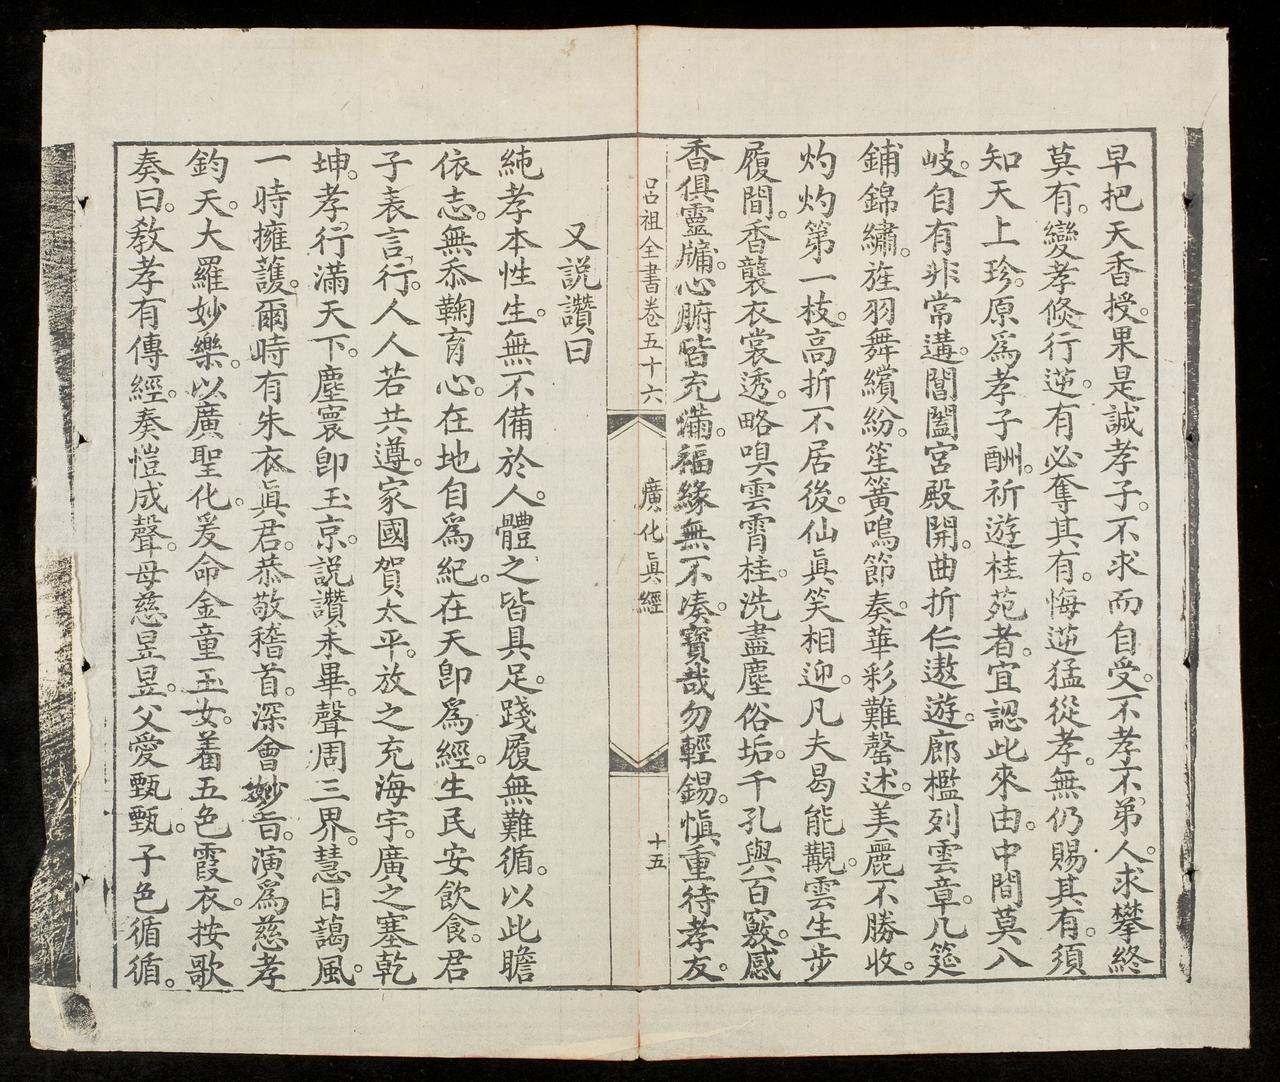 早把天香授。果是誠孝子。不求而自受。不孝不弟人。求攀終
莫有。變孝倐行逆。有必奪其有。悔逆猛從孝。無仍賜其有。須
知天上珍。原爲孝子酬。祈遊桂苑者。宜認此來由。中間莫八
岐。自有非常遘。閶闔宮殿開。曲折仁遨遊。廊檻列雲章。几筵
鋪錦繡。旌羽舞繽紛。笙簧鳴節奏。華彩難罄述。美麗不勝收。
灼灼第一枝。高折不居後。仙眞笑相迎。凡夫曷能覯。雲生步
履間。香襲衣裳透。略嗅雲霄桂。洗盡塵俗垢。千孔與百竅。感
香俱靈牖。心腑皆充滿。福緣無不凑。寳哉勿輕錫。愼重待孝友。
呂祖全書卷五十六
廣化眞經
十五
又說讚曰
純孝本性生。無不備於人。體之皆具足。踐履無難循。以此瞻
依志。無忝鞠育心。在地自爲紀。在天卽爲經。生民安飮食。君
子表言行。人人若共遵。家國賀太平。放之充海宇。廣之塞乾
坤。孝行滿天下。塵寰卽玉京。說讚未畢。聲周三界。慧日藹風。
一時擁護。爾時有朱衣眞君。恭敬稽首。深會妙旨。演爲慈孝
鈞天。大羅妙樂。以廣聖化。爰命金童玉女。着五色霞衣。按歌
奏曰。敎孝有傳經。奏愷成聲。母慈昱昱。父愛甄甄。子色循循。